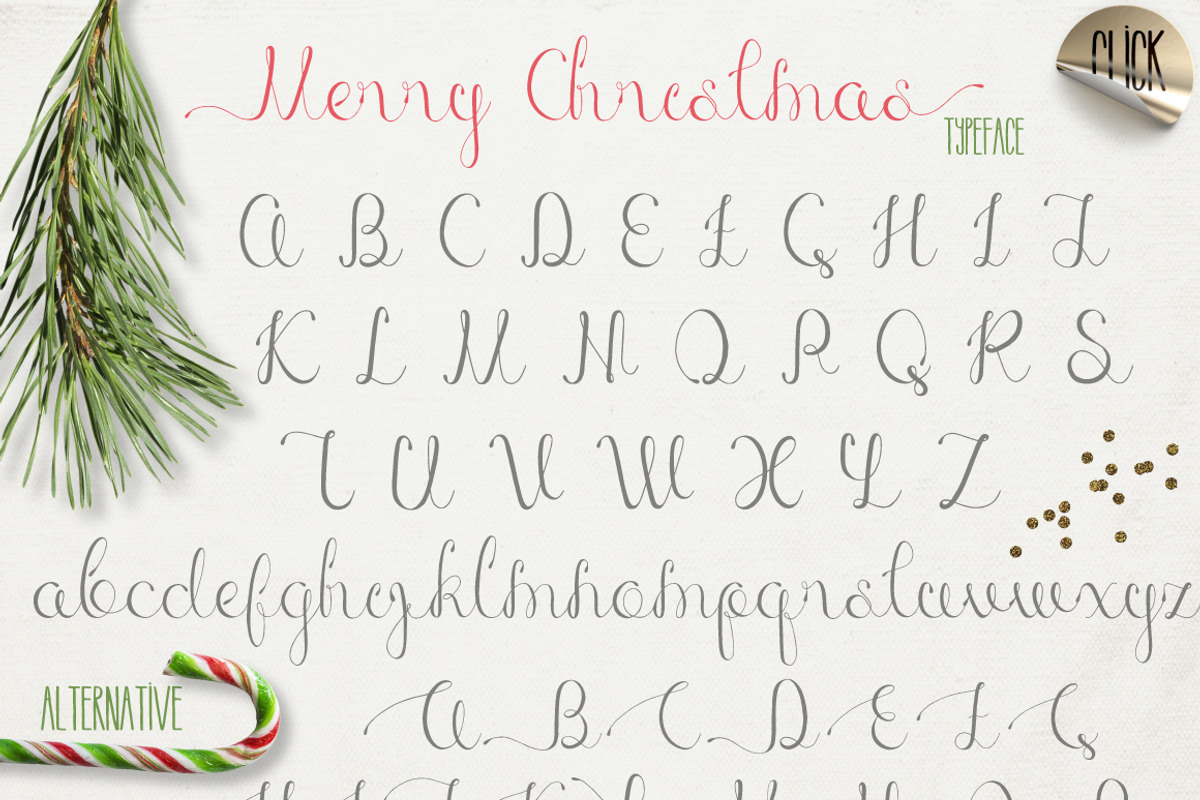 Merry Christmas
CLICK
TYPEFACE
A B C D E F G H I J
K L M N O P Q R S
T U V W X Y Z
abcdefghijklmnopqrstuvwxyz
ALTERNATIVE
A B C D E F G